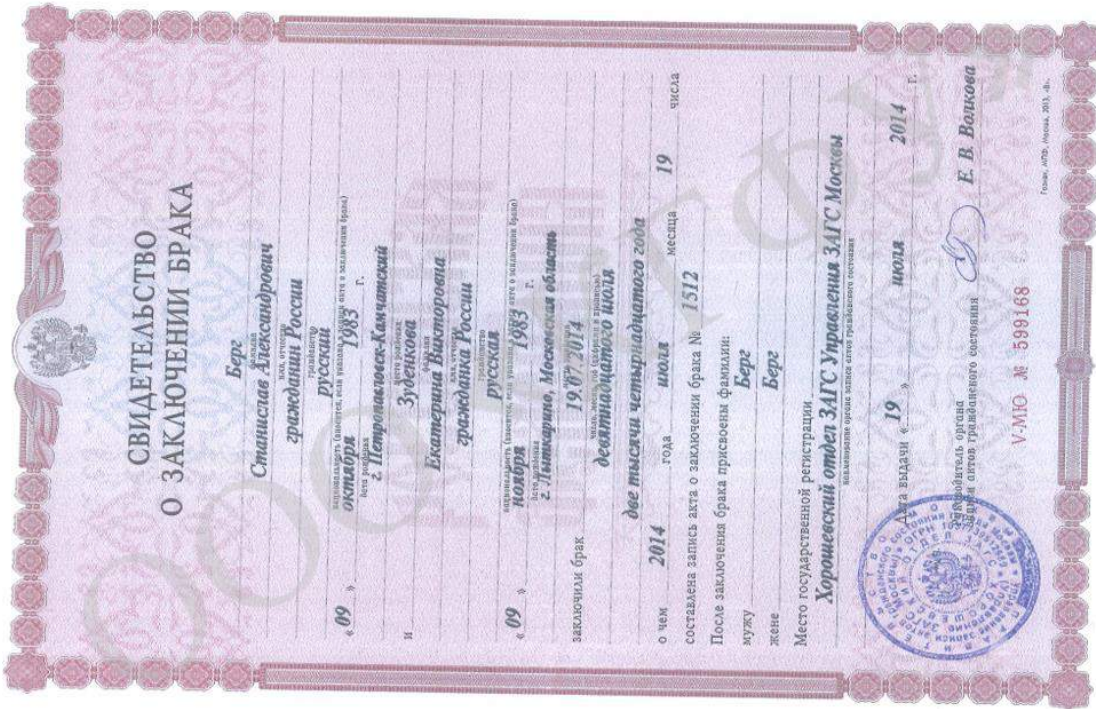 СВИДЕТЕЛЬСТВО
О ЗАКЛЮЧЕНИИ БРАКА
Берг
фамилия
Станислав Александрович
имя, отчество
гражданин России
гражданство
русский
национальность (вносится, если указана в записи акта о заключении брака)
« 09 » октября 1983 г.
дата рождения
г. Петропавловск-Камчатский
место рождения
и Зуденкова
фамилия
Екатерина Викторовна
имя, отчество
гражданка России
гражданство
русская
национальность (вносится, если указана в записи акта о заключении брака)
« 09 » ноября 1983 г.
дата рождения
г. Лыткарино, Московская область
заключили брак 19.07.2014
число, месяц, год (цифрами и прописью)
девятнадцатого июля
две тысячи четырнадцатого года
о чем 2014 года июля месяца 19 числа
составлена запись акта о заключении брака № 1512
После заключения брака присвоены фамилии:
мужу Берг
жене Берг
Место государственной регистрации
Хорошевский отдел ЗАГС Управления ЗАГС Москвы
наименование органа записи актов гражданского состояния
Дата выдачи « 19 » июля 2014 г.
Руководитель органа
записи актов гражданского состояния Е. В. Волкова
V-МЮ № 599168
Гознак, МПФ, Москва, 2013, «В».